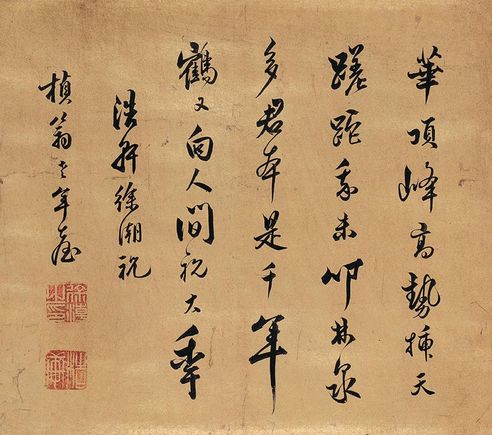 華頂峰高勢插天
蹉跎我未叩林泉
多君本是千年
鶴又向人間祝大年
浩軒徐潮祝
楨翁老年臺